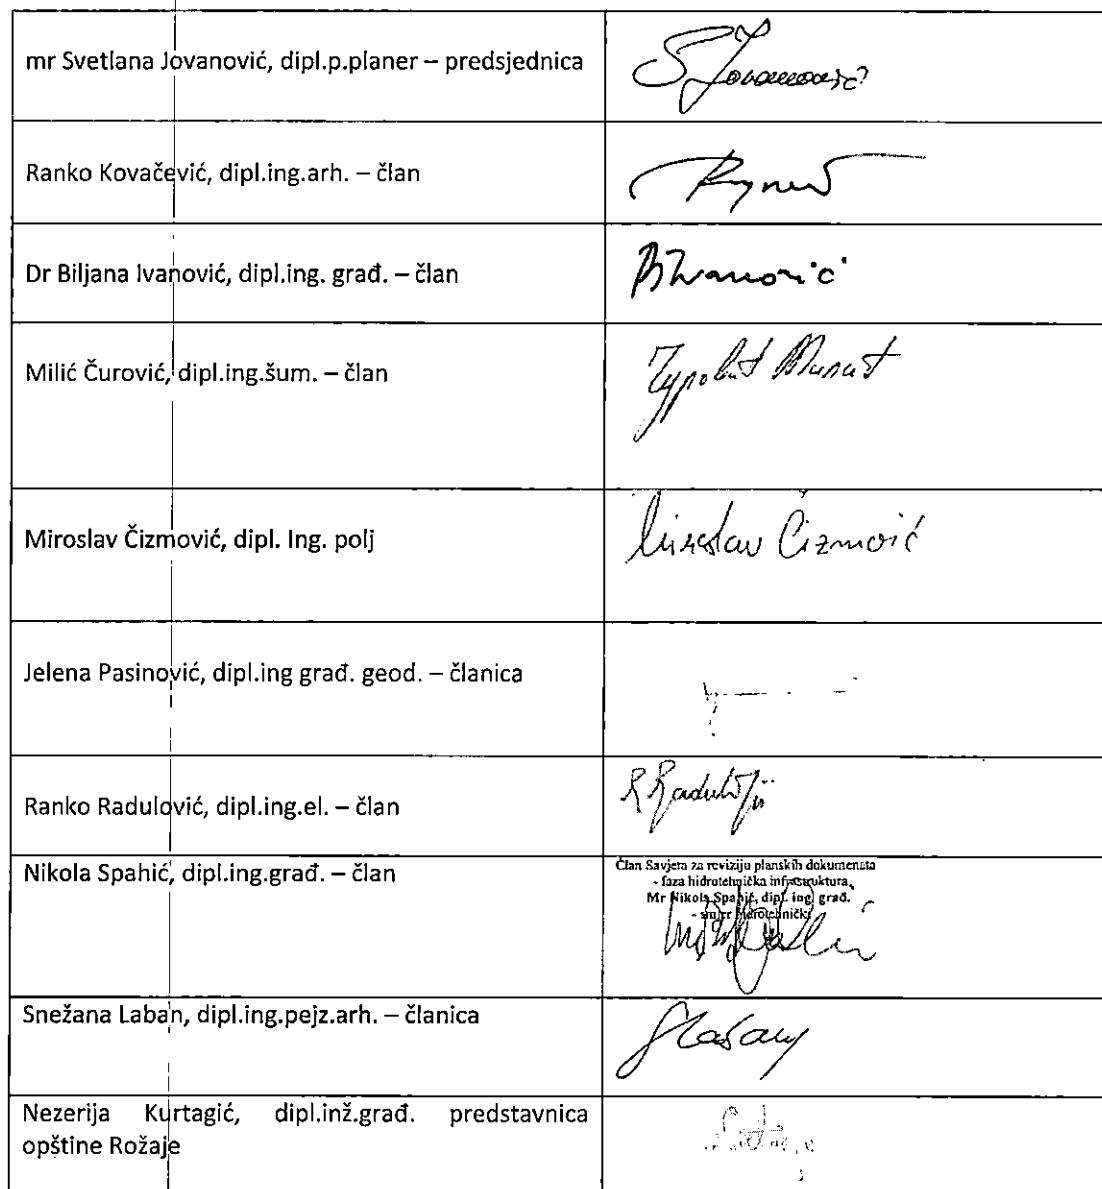 mr Svetlana Jovanović, dipl.p.planer – predsjednica
S Jovanović
Ranko Kovačević, dipl.ing.arh. – član
Dr Biljana Ivanović, dipl.ing. građ. – član
BIvanović
Milić Čurović, dipl.ing.šum. – član
Miroslav Čizmović, dipl. Ing. polj
Miroslav Čizmović
Jelena Pasinović, dipl.ing građ. geod. – članica
Ranko Radulović, dipl.ing.el. – član
R Radulović
Nikola Spahić, dipl.ing.građ. – član
Član Savjeta za reviziju planskih dokumenata
- faza hidrotehnička infrastruktura,
Mr Nikola Spahić, dipl. ing. građ.
- smjer hidrotehnički
Snežana Laban, dipl.ing.pejz.arh. – članica
SLaban
Nezerija Kurtagić, dipl.inž.građ. predstavnica
opštine Rožaje